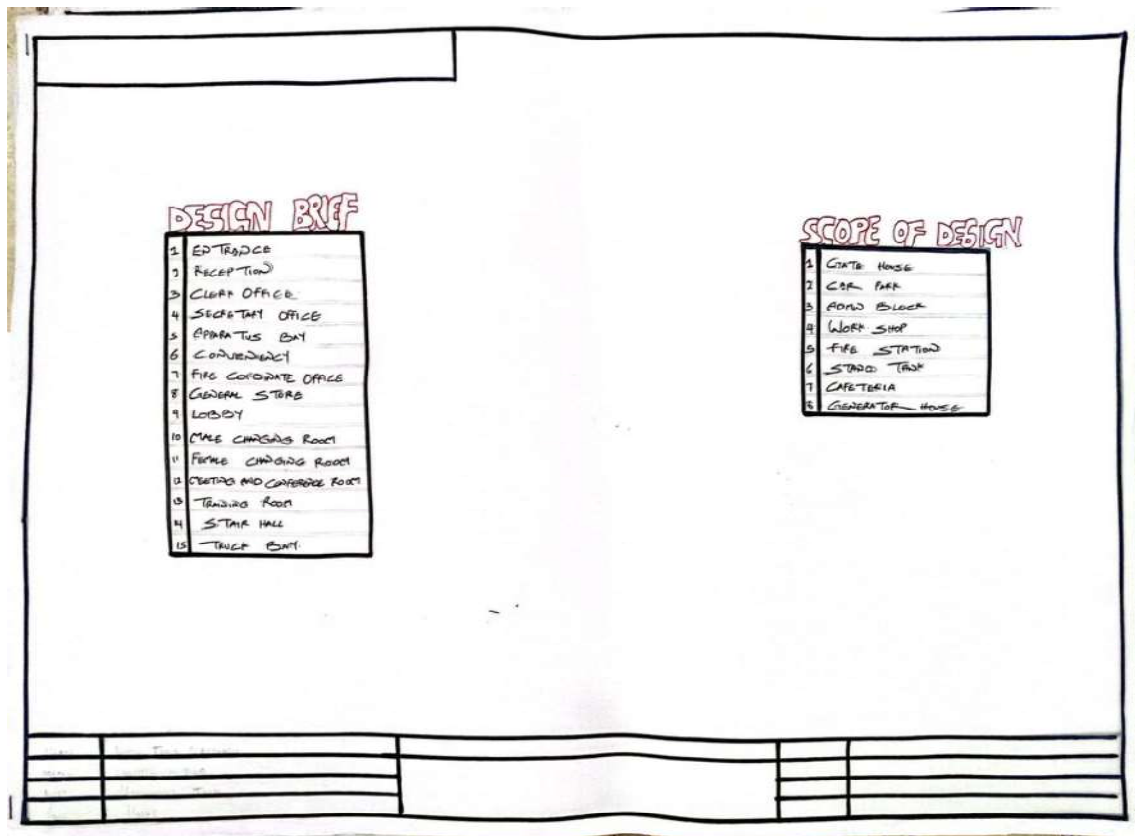 DESIGN BRIEF
1 ENTRANCE
2 RECEPTION
3 CLERK OFFICE
4 SECRETARY OFFICE
5 APPARATUS BAY
6 CONVENIENCY
7 FIRE COORDINATE OFFICE
8 GENERAL STORE
9 LOBBY
10 MALE CHANGING ROOM
11 FEMALE CHANGING ROOM
12 MEETING AND CONFERENCE ROOM
13 TRAINING ROOM
14 STAIR HALL
15 TRUCK BAY
SCOPE OF DESIGN
1 GATE HOUSE
2 CAR PARK
3 ADMIN BLOCK
4 WORK SHOP
5 FIRE STATION
6 STAND TANK
7 CAFETERIA
8 GENERATOR HOUSE